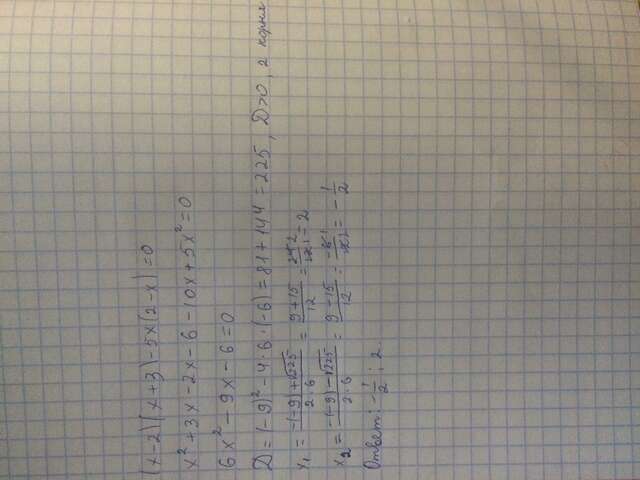 (x-2)(x+3)-5x(2-x)=0
x²+3x-2x-6-10x+5x²=0
6x²-9x-6=0
D=(-9)²-4·6·(-6)=81+144=225, D>0, 2 корня
x₁ = (-(-9)+√225)/(2·6) = (9+15)/12 = 24/12 = 2/1 = 2
x₂ = (-(-9)-√225)/(2·6) = (9-15)/12 = -6/12 = -1/2
Ответ: -1/2; 2.